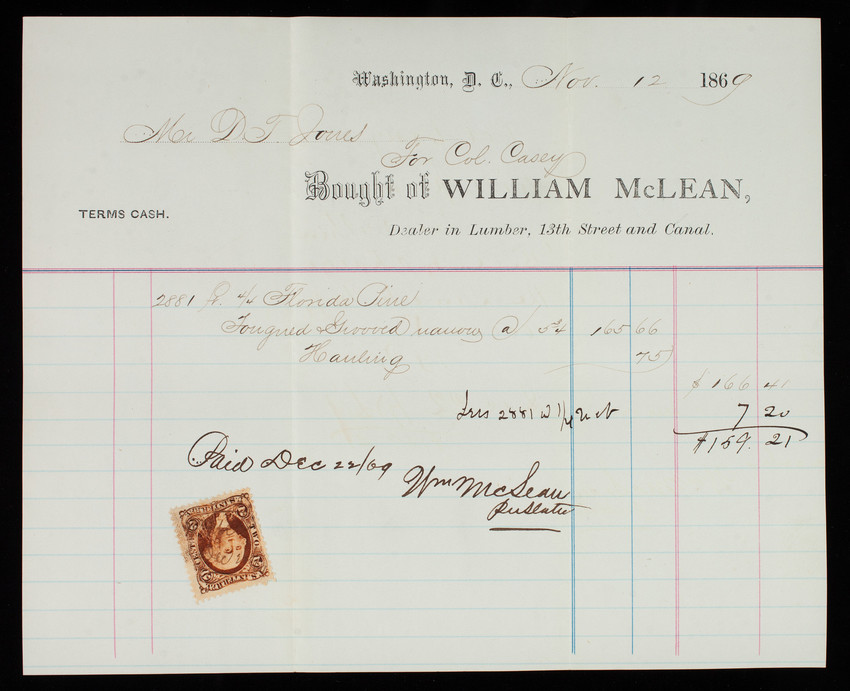 Washington, D. C., Nov. 12 1869
Mr D. T. Jones
For Col. Casey
Bought of WILLIAM McLEAN,
TERMS CASH.
Dealer in Lumber, 13th Street and Canal.
2881 ft. 4/4 Florida Pine
Tongued & Grooved narrow @ 5 3/4 165 66
Hauling 75
$ 166 41
Less 2881 7 20
$159. 21
Paid Dec 22/69
Wm McLean
TWO
U.S. INTER. REV.